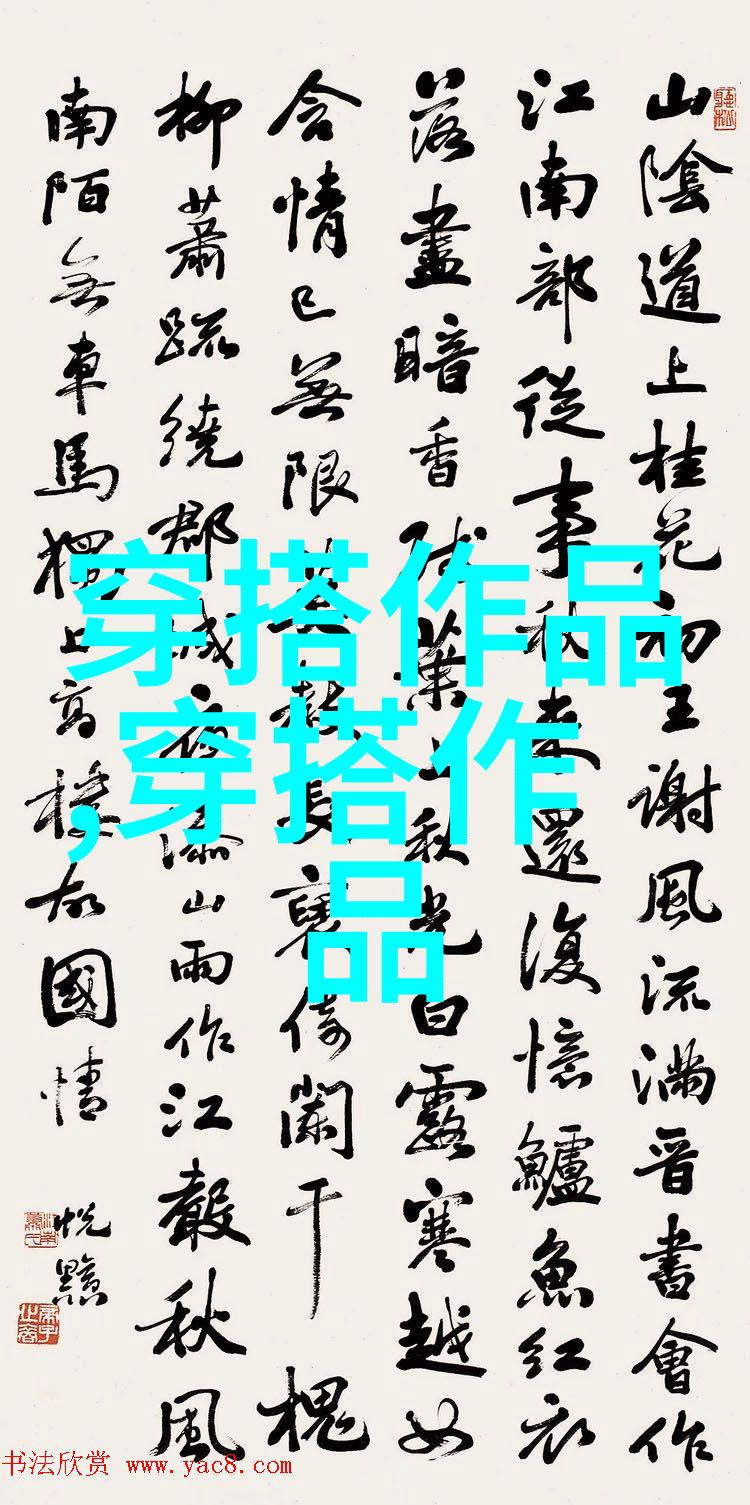 山陰道上桂花初王謝風流滿晋書會作
江南部從事秋來還復憶鱸魚紅衣
落盡暗香殘葉上秋光白露寒越女
含情已無限莫教長褎倚闌干 槐
柳蕭疏繞郡城夜添山雨作江聲秋風
南陌無車馬獨上高樓故國情
穿搭作品
,穿搭作
品
书法欣赏 www.yac8.com